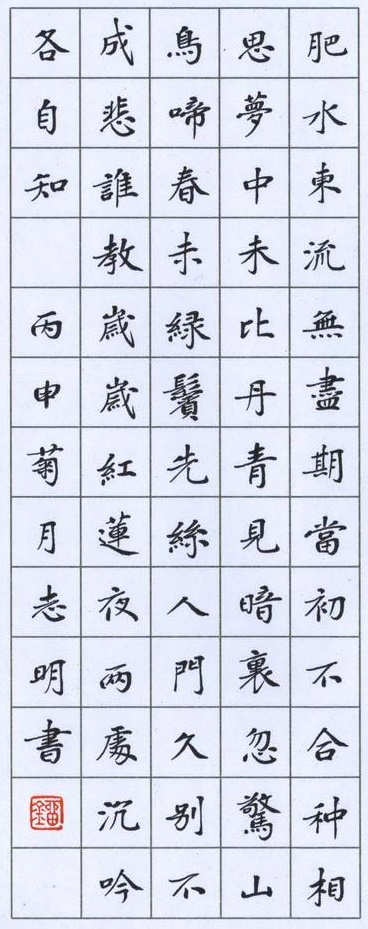 肥水東流無盡期當初不合种相
思夢中未比丹青見暗裏忽驚山
鳥啼春未緑鬢先絲人門久别不
成悲誰教歲歲紅蓮夜两處沉吟
各自知 丙申菊月志明書